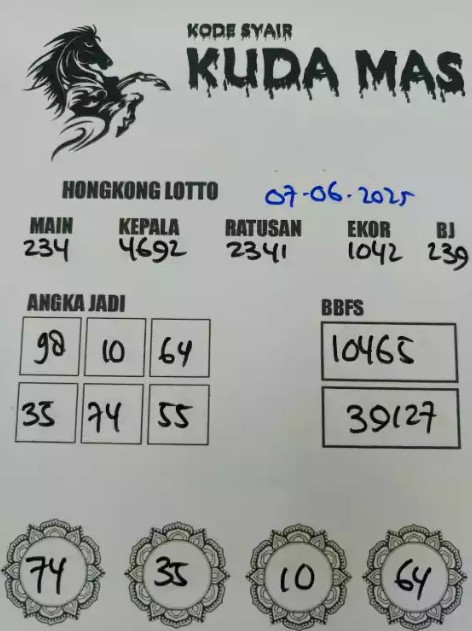 KODE SYAIR
KUDA MAS
HONGKONG LOTTO 07-06-2025
MAIN KEPALA RATUSAN EKOR BJ
234 4692 2341 1042 239
ANGKA JADI BBFS
98 10 64 10465
35 74 55 39127
74 35 10 64